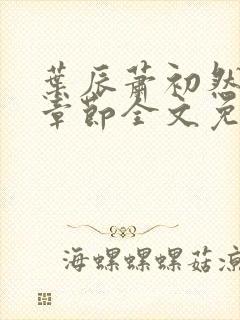 葉辰蕭初然
章節全文免
海螺螺螺菇涼